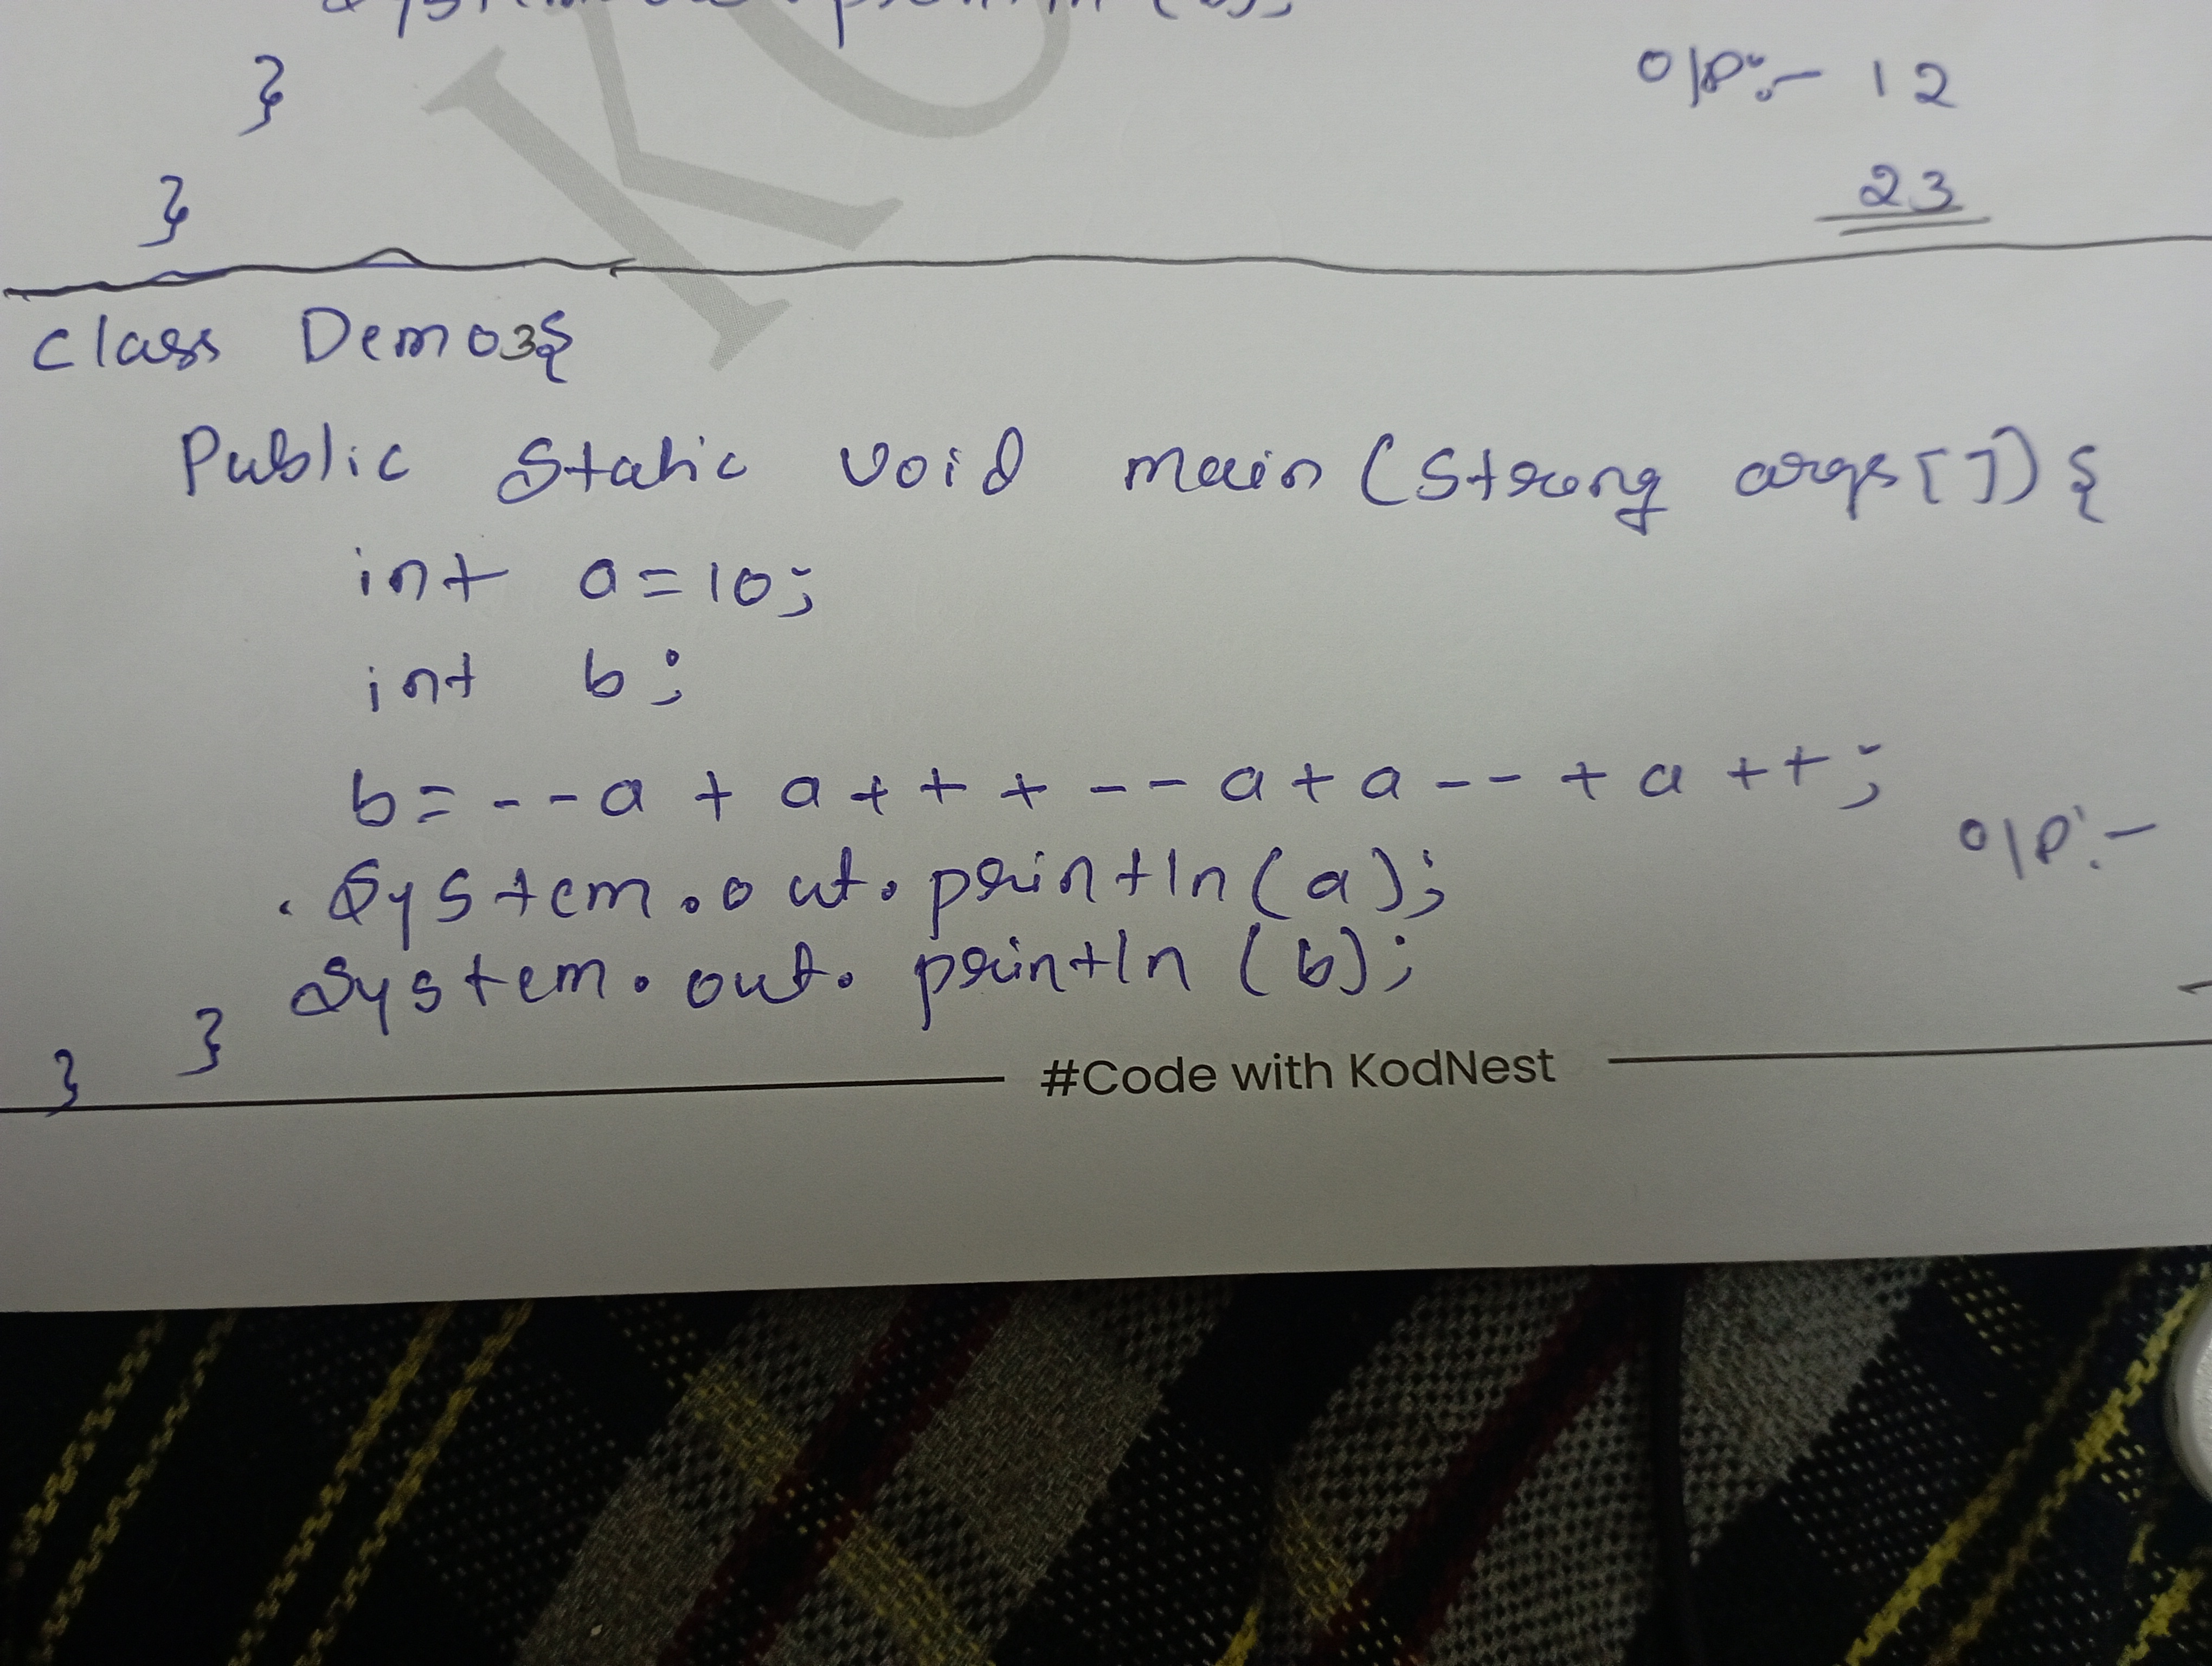 }
O/P:- 12
}
23
class Demo3{
Public Static void main (String args[]){
int a=10;
int b;
b= --a + a++ + --a + a-- + a++;
O/P:-
System.out.println(a);
System.out.println (b);
}
}
#Code with KodNest